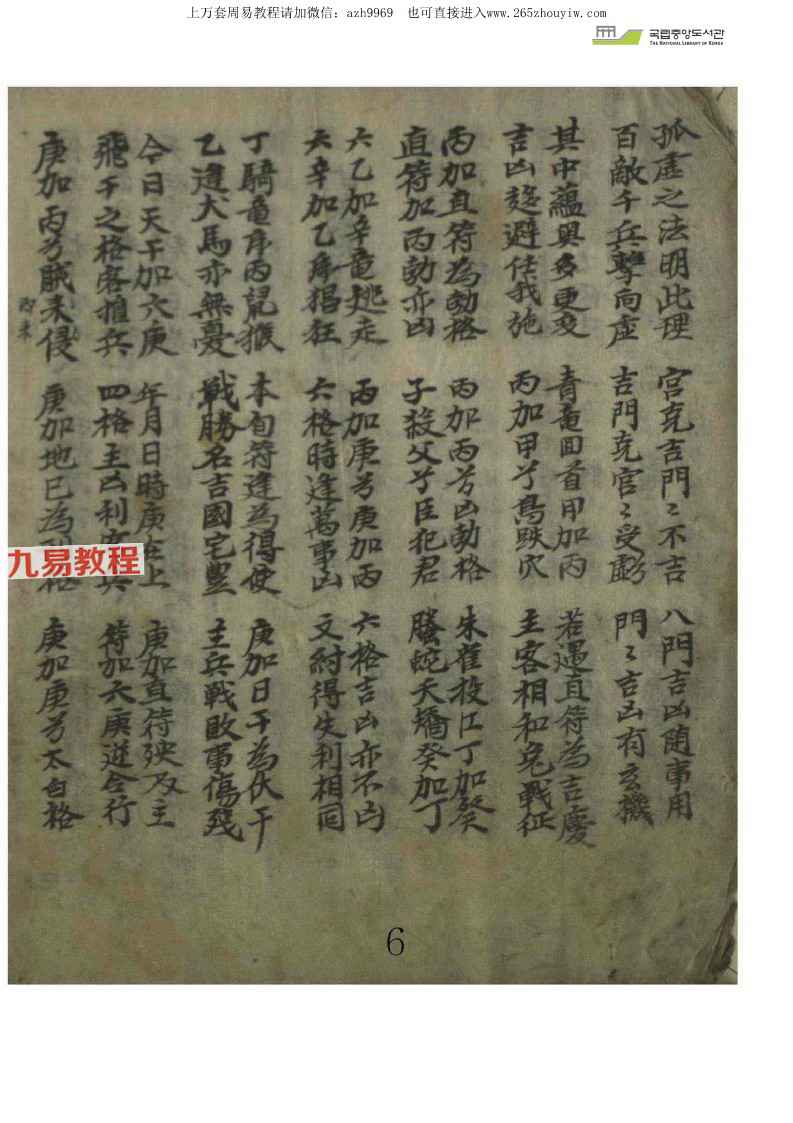 上万套周易教程请加微信：azh9969 也可直接进入www.265zhouyiw.com
국립중앙도서관
THE NATIONAL LIBRARY OF KOREA
孤虛之法明此理
百敵千兵擊向虛
宮克吉門〻不吉
吉門克宮〻受
八門吉凶隨事用
門〻吉凶有玄機
其中蘊奧多更变
吉凶趍避任我施
青竜回首甲加丙
丙加甲兮鳥跌穴
若遇直符為吉慶
主客相和免戰征
丙加直符為勃格
直符加丙勃亦凶
丙加丙兮凶勃格
子殺父兮臣犯君
朱雀投江丁加癸
螣蛇夭矯癸加丁
六乙加辛竜逃走
六辛加乙虎猖狂
丙加庚兮庚加丙
六格時逢萬事凶
六格吉凶亦不凶
文付得失利相同
丁騎竜虎丙鼠猴
乙逢犬馬亦無憂
本旬符逢為得使
戰勝名吉國宅豊
庚加日干為伏干
主兵戰敗事傷殘
今日天干加六庚
飛干之格客擅兵
年月日時庚在上
四格主凶利兵
庚加直符殃及主
符加六庚逆合行
庚加丙兮賊来侵
庚加地已為格
庚加庚兮太白格
九易教程
6